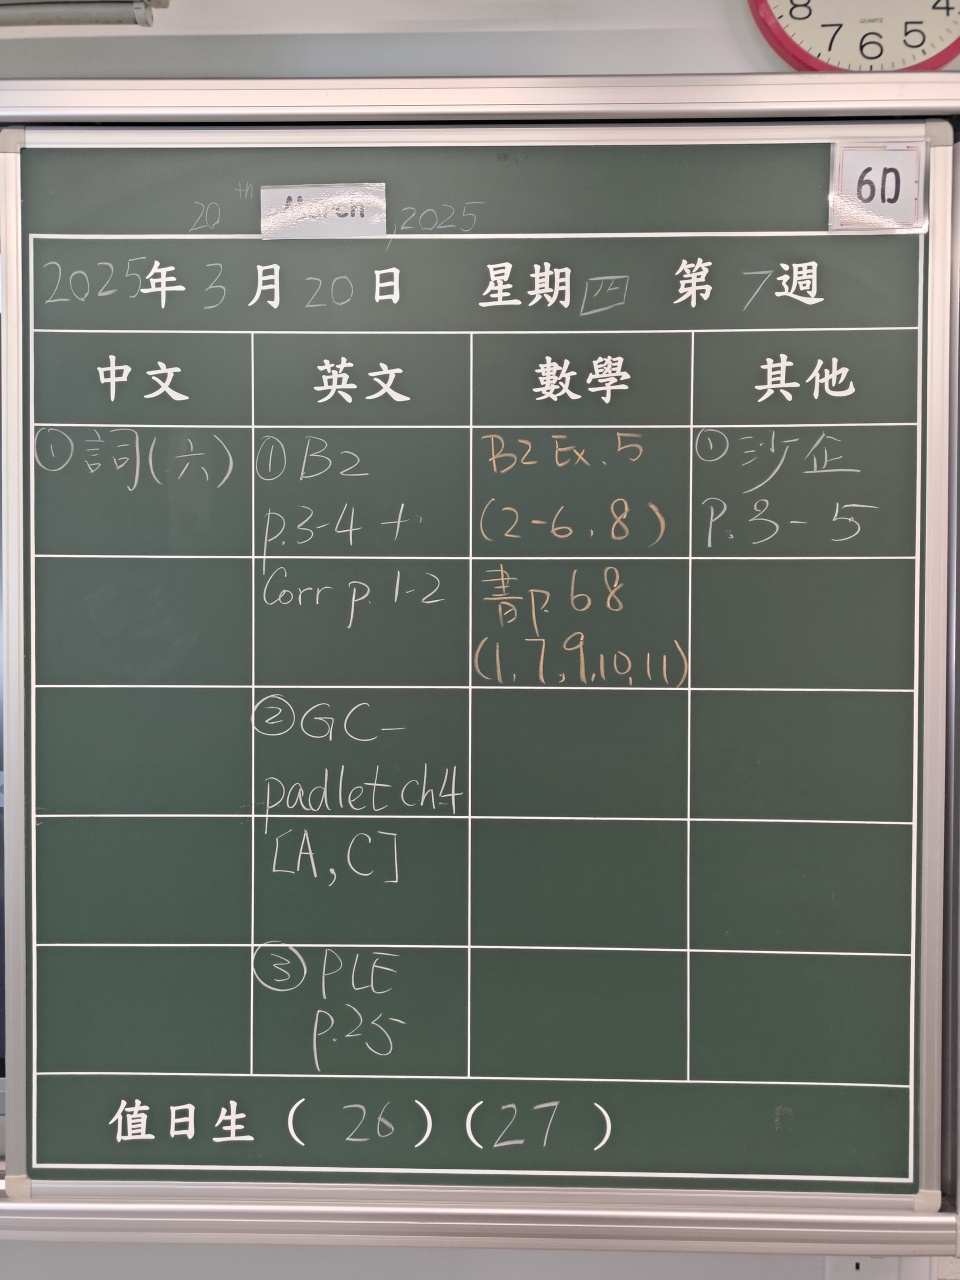 8 7 6 5 4
QUARTZ
6D
20th March, 2025
2025年3月20日 星期四 第7週
中文 英文 數學 其他
①詞(六)
①B2
p.3-4 +
Corr p. 1-2
②GC-
padlet ch4
[A,C]
③PLE
p.25
B2 Ex. 5
(2-6, 8)
書p. 68
(1, 7, 9, 10, 11)
①沙企
P. 3-5
值日生(26)(27)